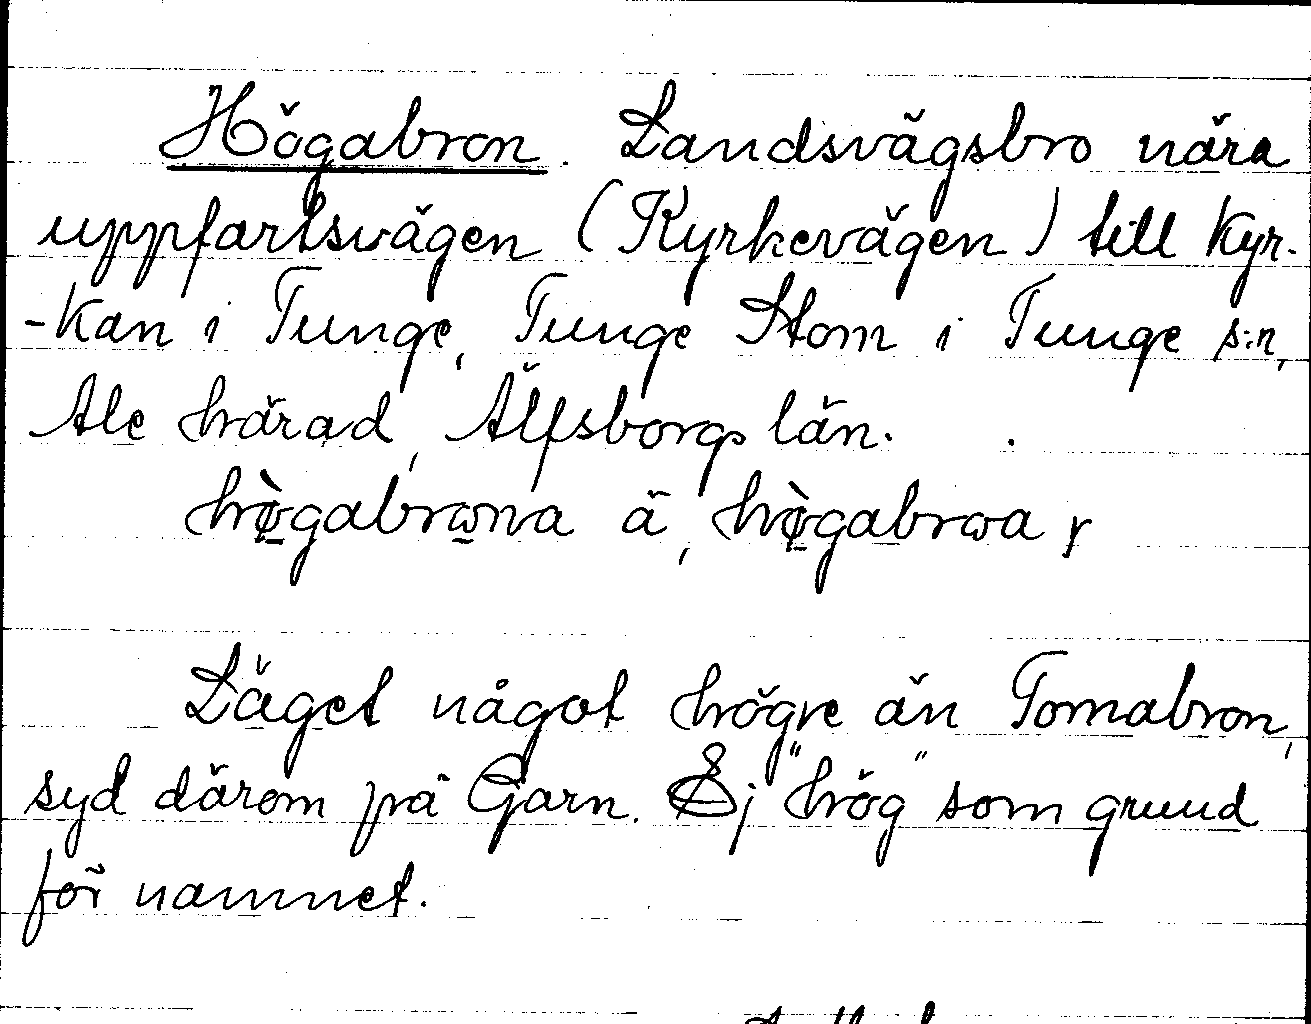 Högabron. Landsvägsbro nära
uppfartsvägen (Kyrkevägen) till Kyr-
-kan i Tunge, Tunge Stom i Tunge s:n,
Ale härad, Älfsborgs län.
hø̀gabrωna ä, hø̀gabrωa y
Läget något högre än Tomabron,
syd därom på Garn. Ej "hög" som grund
för namnet.